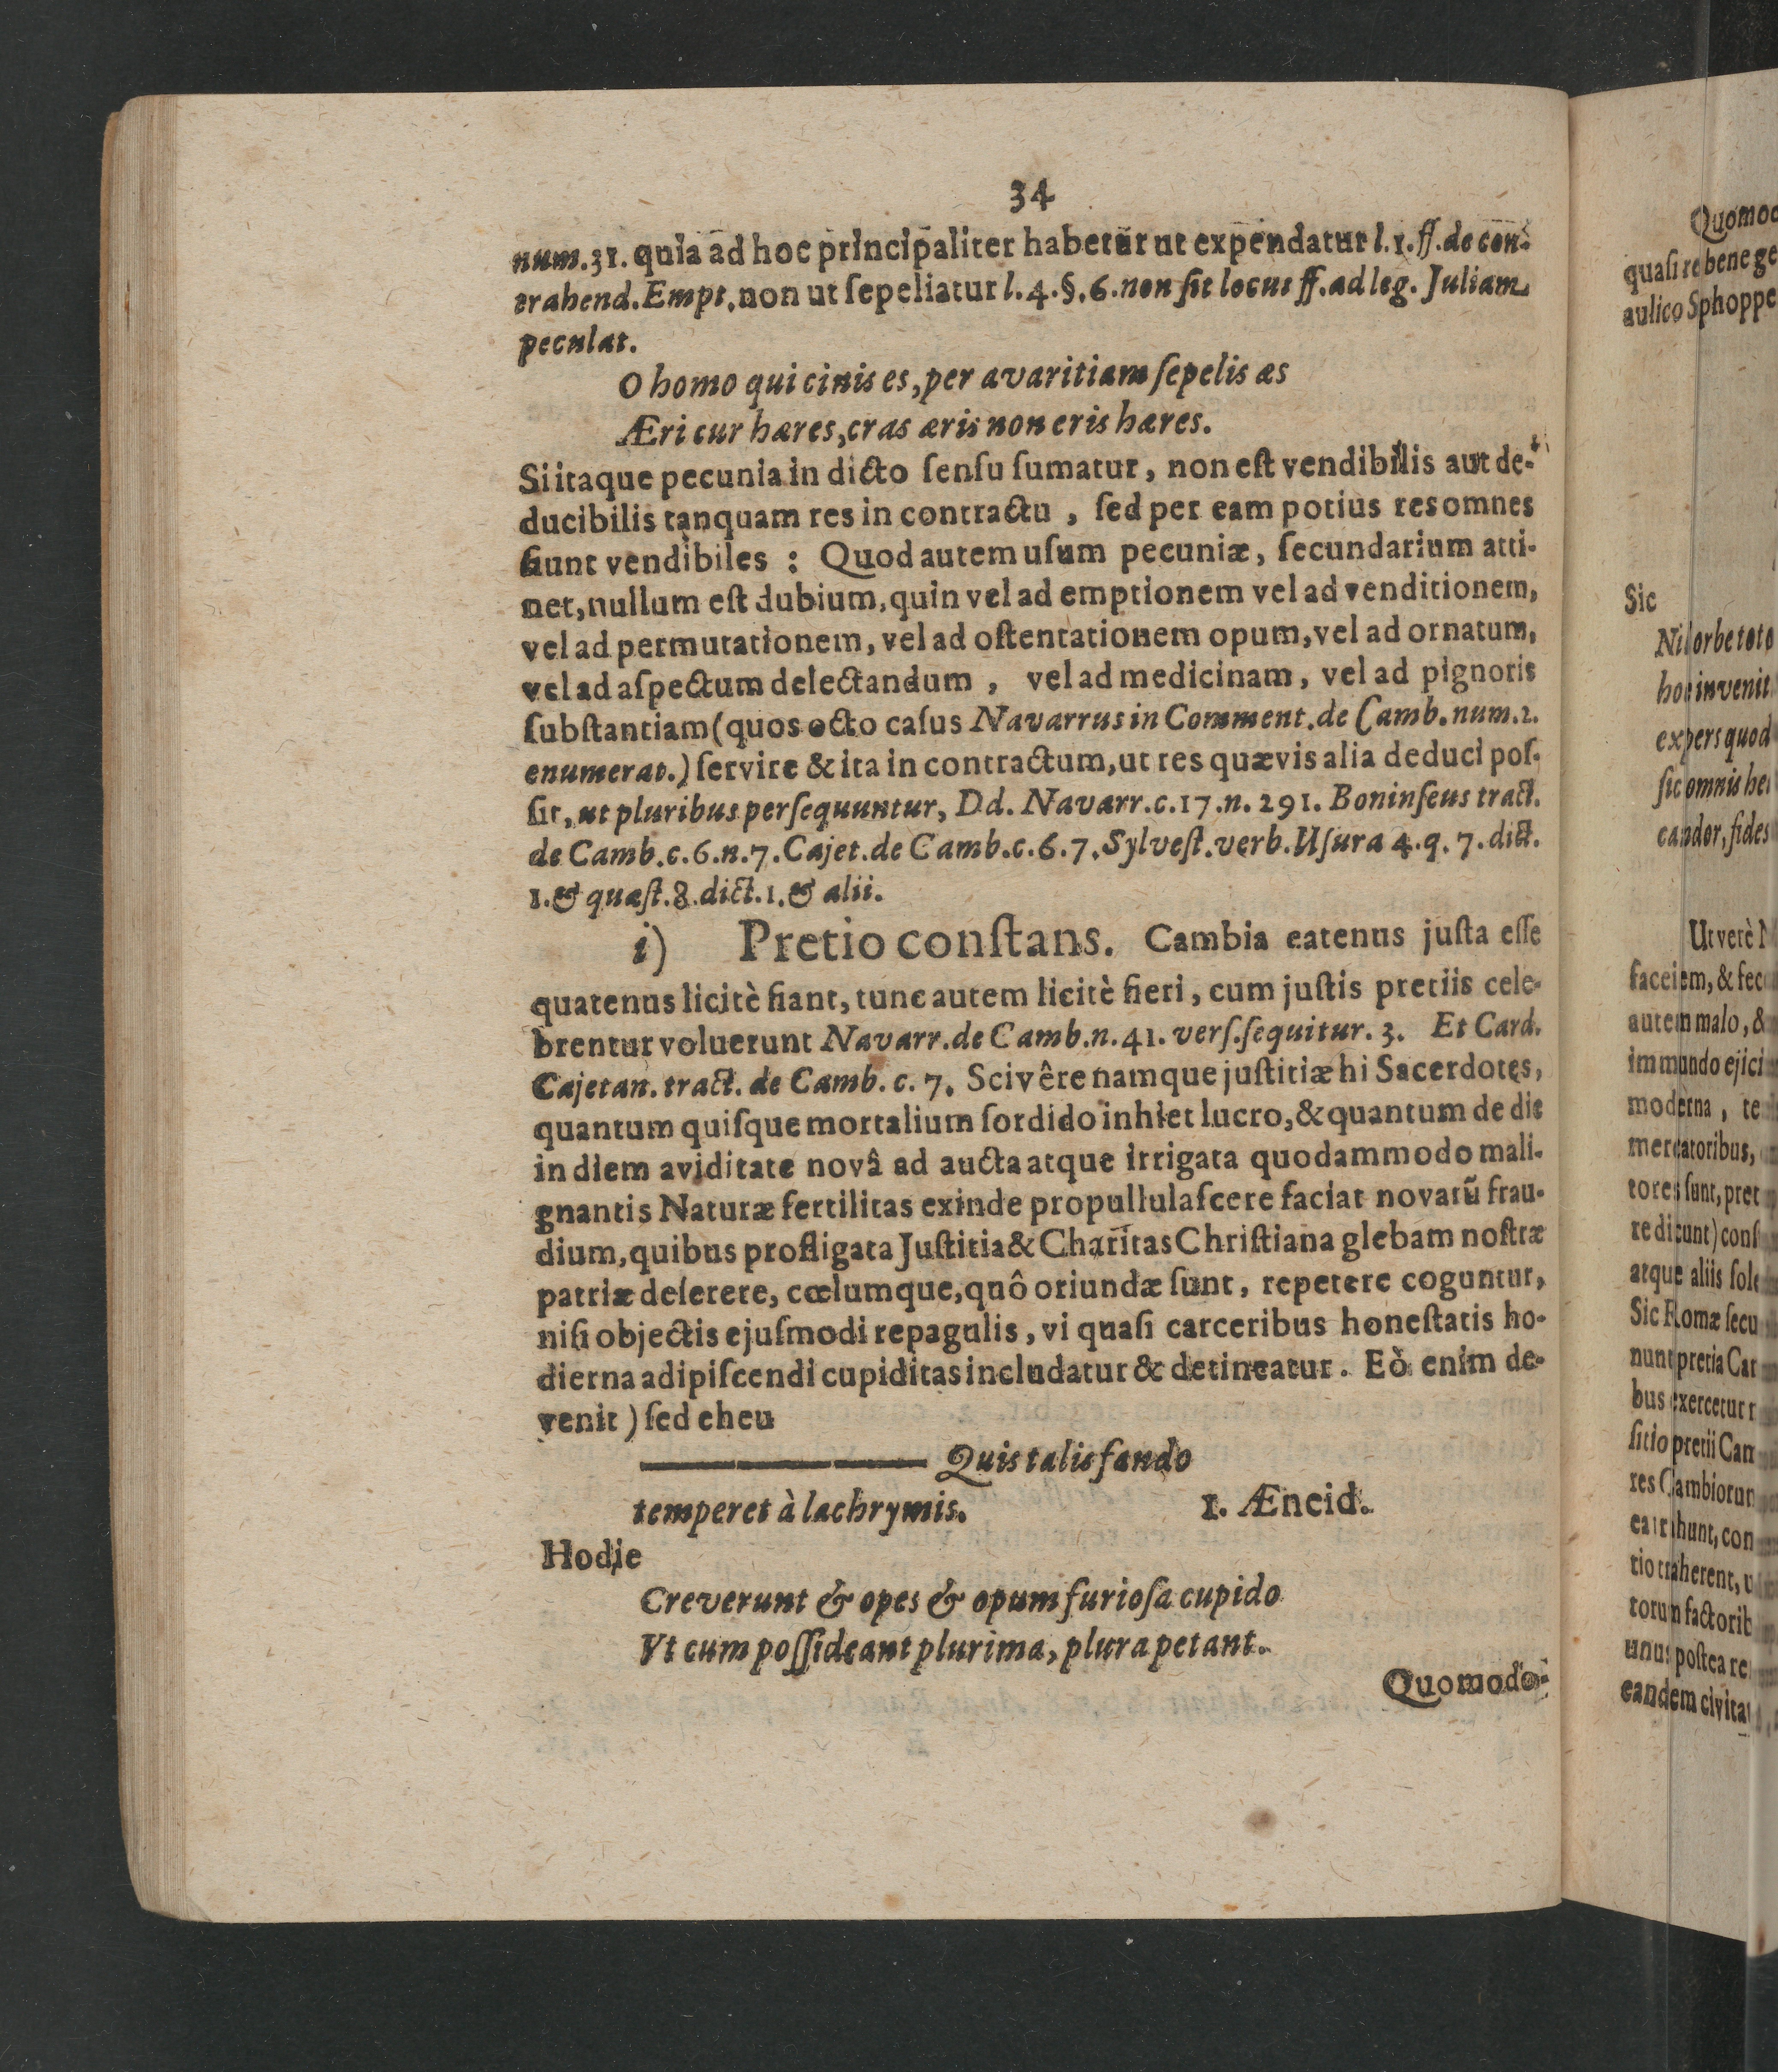 34
num. 31. quia ad hoc principaliter habetur ut expendatur l. 1. ff. de con-
trahend. Empt. non ut ſepeliatur l. 4. §. 6. non ſit locus ff. ad leg. Juliam
peculat.
O homo qui cinis es, per avaritiam ſepelis æs
Æri cur hæres, cras æris non eris hæres.
Si itaque pecunia in dicto ſenſu ſumatur, non eſt vendibilis aut de-
ducibilis tanquam res in contractu, ſed per eam potius res omnes
fiunt vendibiles: Quod autem uſum pecuniæ, ſecundarium atti-
net, nullum eſt dubium, quin vel ad emptionem vel ad venditionem,
vel ad permutationem, vel ad oſtentationem opum, vel ad ornatum,
vel ad aſpectum delectandum, vel ad medicinam, vel ad pignoris
ſubſtantiam (quos octo caſus Navarrus in Comment. de Camb. num. 2.
enumerat.) ſervire & ita in contractum, ut res quævis alia deduci poſ-
ſit, ut pluribus perſequuntur, Dd. Navarr. c. 17. n. 291. Boninſeus tract.
de Camb. c. 6. n. 7. Cajet. de Camb. c. 6. 7. Sylveſt. verb. Uſura 4. q. 7. dict.
1. & quæſt. 8. dict. 1. & alii.
i) Pretio conſtans. Cambia eatenus juſta eſſe
quatenus licitè fiant, tunc autem licitè fieri, cum juſtis pretiis cele-
brentur voluerunt Navarr. de Camb. n. 41. verſ. ſequitur. 3. Et Card.
Cajetan. tract. de Camb. c. 7. Scivêre namque juſtitiæ hi Sacerdotes,
quantum quiſque mortalium ſordido inhiet lucro, & quantum de die
in diem aviditate novâ ad aucta atque irrigata quodammodo mali-
gnantis Naturæ fertilitas exinde propullulaſcere faciat novarũ frau-
dium, quibus profligata Juſtitia & Charitas Chriſtiana glebam noſtræ
patriæ deſerere, cœlumque, quô oriundæ ſunt, repetere coguntur,
niſi objectis ejuſmodi repagulis, vi quaſi carceribus honeſtatis ho-
dierna adipiſcendi cupiditas includatur & detineatur. Eò enim de-
venit ) ſed eheu
——— Quis talis fando
temperet à lachrymis. 1. Æneid.
Hodie
Creverunt & opes & opum furioſa cupido
Vt cum poſſideant plurima, plura petant.
Quomodo-
Quomod
quaſi re bene ge
aulico Sphoppe
Sic
Nil orbe toto
hoc invenit
expers quod
ſic omnis he
candor, fides
Ut verè
faceiem, & fec
autem malo, &
immundo ejici
moderna, te
mercatoribus,
tores ſunt, pret
re dicunt) conſ
atque aliis ſole
Sic Romæ ſecu
nunt pretia Car
bus exercetur
ſitio pretii Cam
res Cambiorum
ea trahunt, con
tio traherent,
torum factorib
unus poſtea re
eandem civitat